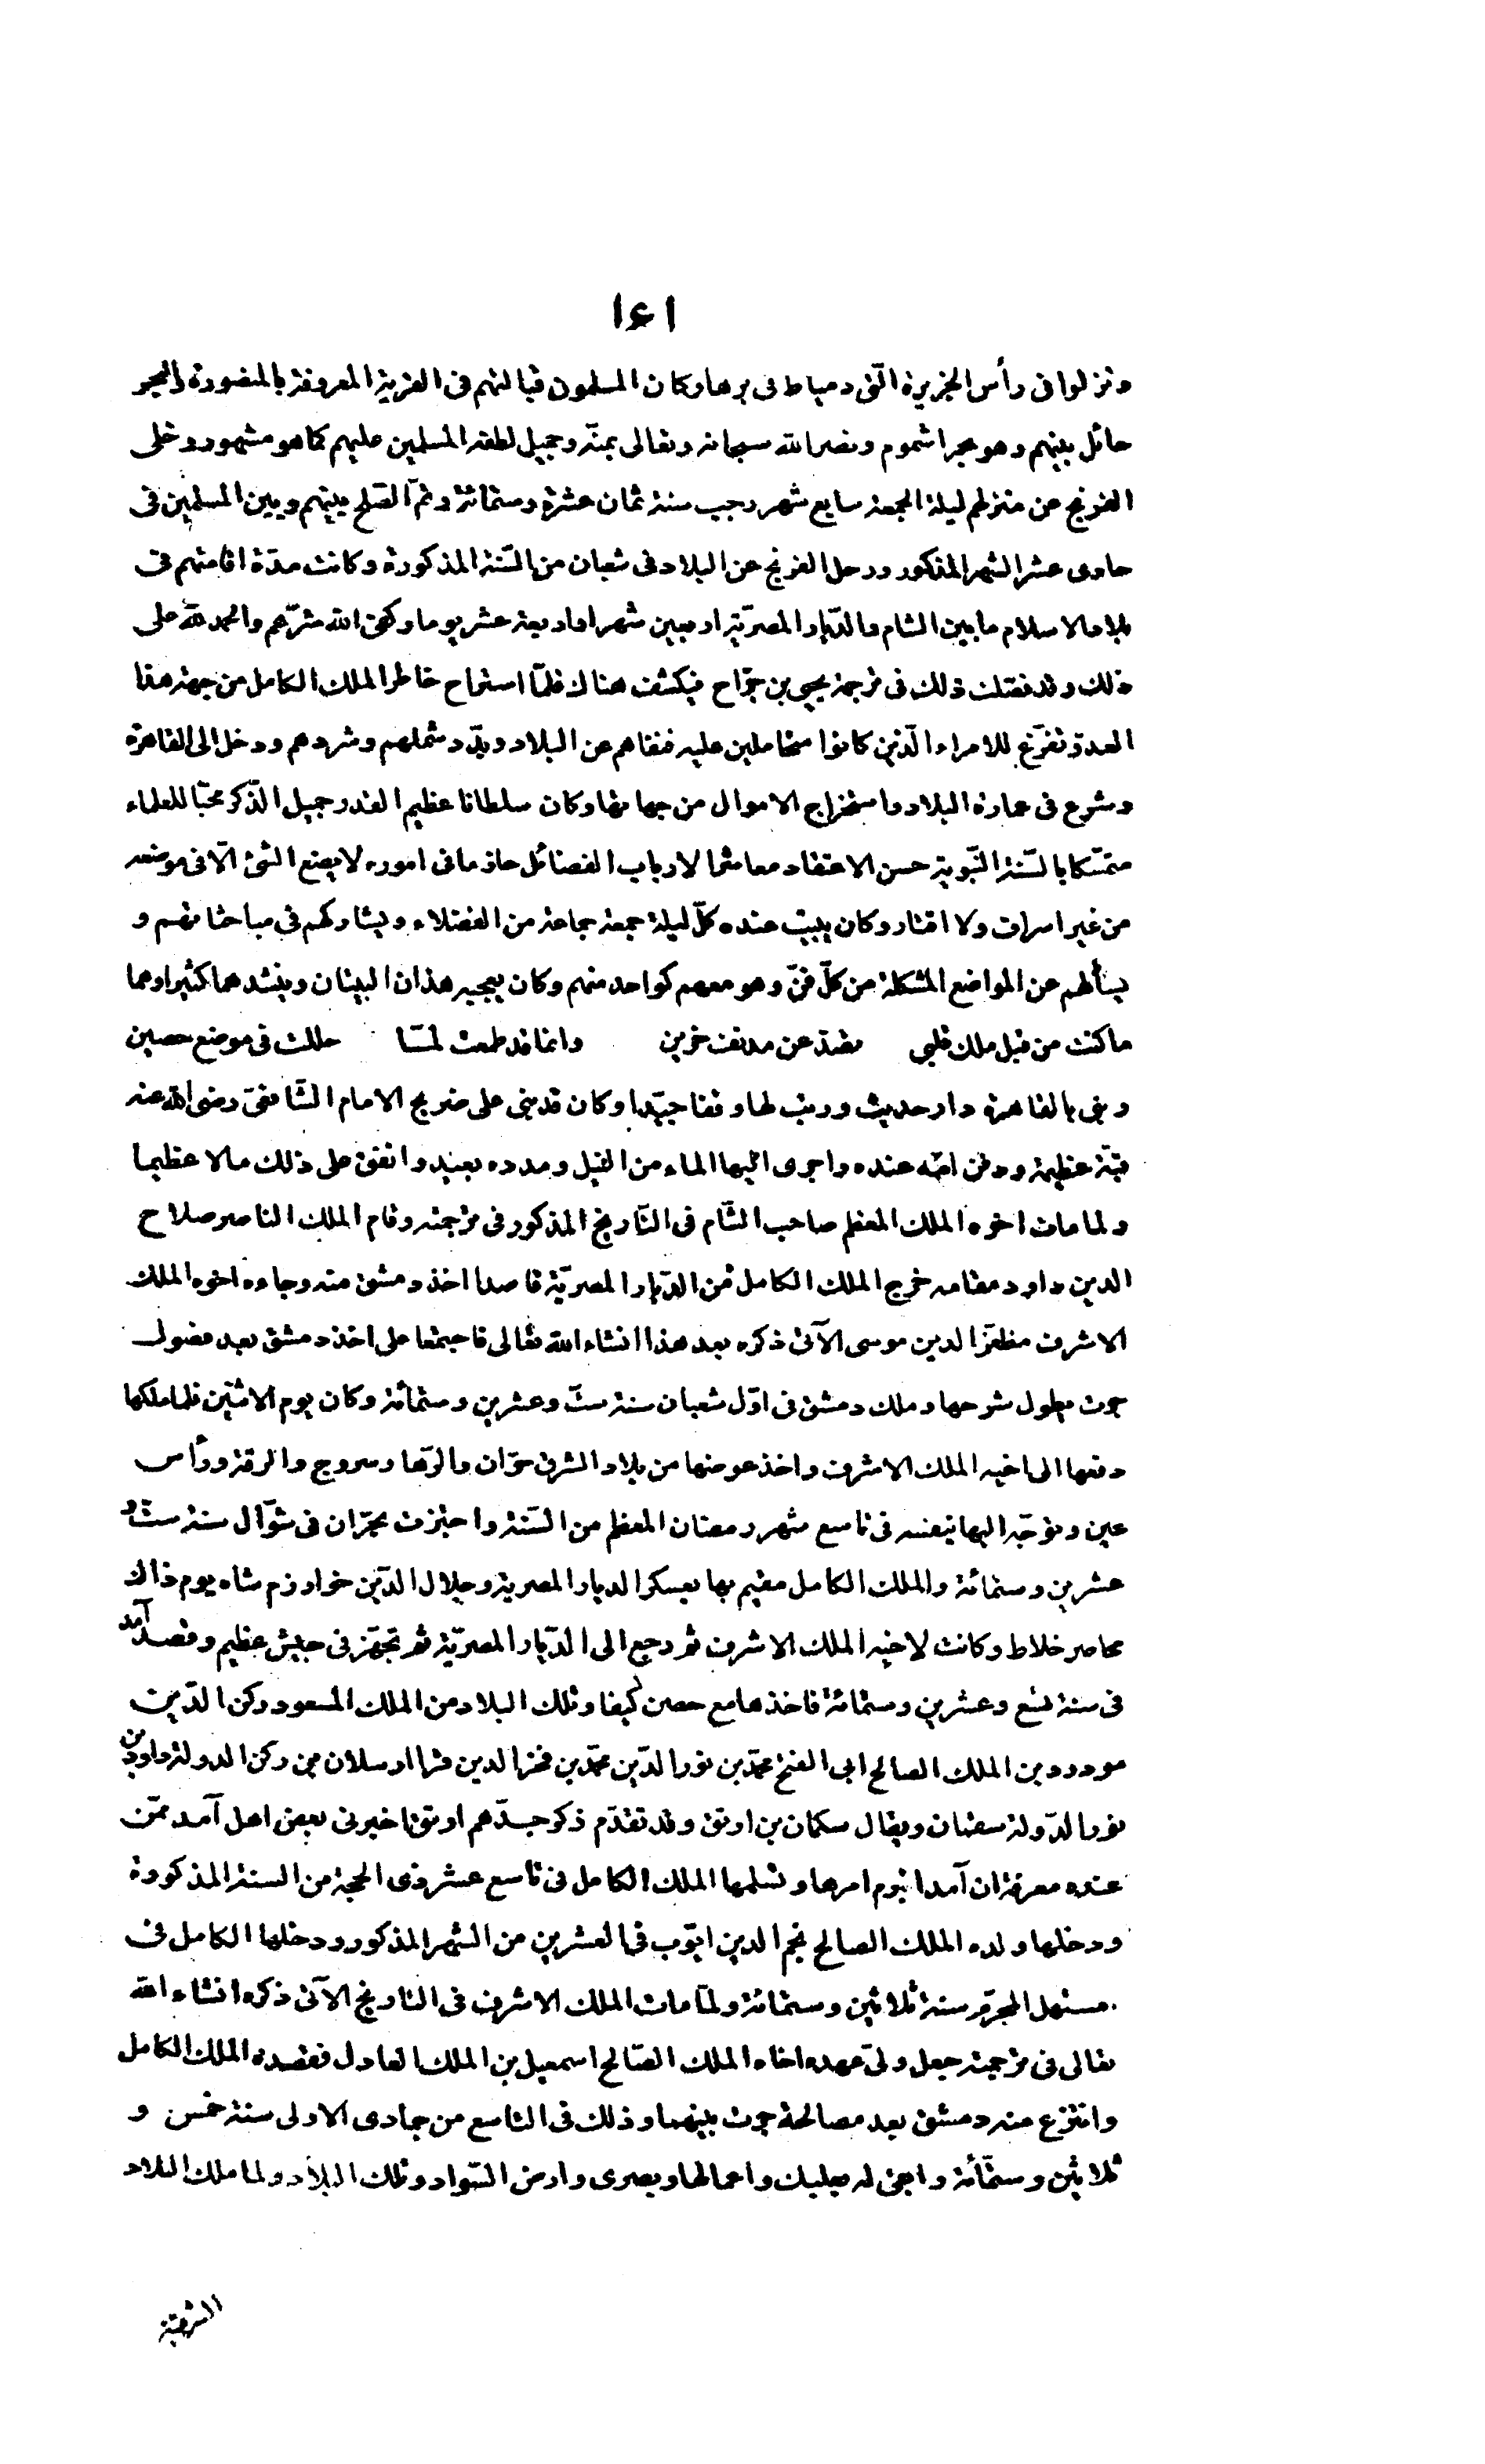 ١٤١
ونزلوا فى رأس الجزيرة الّتى دمياط فى برها وكان المسلمون قبالتهم فى القرية المعروفة بالمنصورة والبحر
حائل بينهم وهو بحر اشموم ونصر الله سبحانه وتعالى بمنّه وجميل لطفه المسلمين عليهم كما هو مشهور ورحل
الفرنج عن منزلهم ليلة الجمعة سابع شهر رجب سنة ثمان عشرة وستمائة وتمّ الصّلح بينهم وبين المسلمين فى
حادى عشر الشهر المذكور ورحل الفرنج عن البلاد فى شعبان من السّنة المذكورة وكانت مدّة اقامتهم فى
بلاد الاسلام ما بين الشام والدّيار المصريّة اربعين شهرا واربعة عشر يوما وكفى الله شرّهم والحمد لله على
ذلك وقد فصّلت ذلك فى ترجمة يحيى بن جرّاح فيكشف هناك فلمّا استراح خاطر الملك الكامل من جهة هذا
العدوّ تفرّغ للامراء الّذين كانوا متحاملين عليه فنفاهم عن البلاد وبدّد شملهم وشردهم ودخل الى القاهرة
وشرع فى عمارة البلاد واستخراج الاموال من جهاتها وكان سلطانا عظيم القدر جميل الذّكر محبّا للعلماء
متمسّكا بالسّنة النّبوية حسن الاعتقاد معاشرا لارباب الفضائل حازما فى اموره لا يضع الشئ الّا فى موضعه
من غير اسراف ولا اقتار وكان يبيت عنده كلّ ليلة جمعة جماعة من الفضلاء ويشاركهم فى مباحثاتهم و
يسألهم عن المواضع المشكلة من كلّ فنّ وهو معهم كواحد منهم وكان يعجبه هذان البيتان وينشدهما كثيرا وهما
ما كنت من قبل ملك قلبى تصدّ عن مدنف حزين وانما قد طمعت لمّا حللت فى موضع حصين
وبنى بالقاهرة دار حديث ورتب لها وقفا جيّدا وكان قد بنى على ضريح الامام الشّافعىّ رضى الله عنه
قبّة عظيمة ودفن امّه عنده واجرى اليها الماء من النيل ومدده بعيد وانفق على ذلك مالا عظيما
ولما مات اخوه الملك المعظم صاحب الشّام فى التّاريخ المذكور فى ترجمته وقام الملك الناصر صلاح
الدين داود مقامه خرج الملك الكامل من الدّيار المصريّة قاصدا اخذ دمشق منه وجاءه اخوه الملك
الاشرف مظفّر الدين موسى الآتى ذكره بعد هذا انشاء الله تعالى فاجتمعا على اخذ دمشق بعد فصول
جرت يطول شرحها وملك دمشق فى اوّل شعبان سنة ستّ وعشرين وستمائة وكان يوم الاثنين فلما ملكها
دفعها الى اخيه الملك الاشرف واخذ عوضها من بلاد الشرق حرّان والرّها وسروج والرقة ورأس
عين وتوجّه اليها بنفسه فى تاسع شهر رمضان المعظم من السّنة واجتزت بحرّان فى شوّال سنة ستّ و
عشرين وستمائة والملك الكامل مقيم بها بعسكر الديار المصرية وجلال الدّين خوارزم شاه يوم ذاك
محاصر خلاط وكانت لاخيه الملك الاشرف ثم رجع الى الدّيار المصريّة ثم تجهّز فى جيش عظيم وقصد آمد
فى سنة تسع وعشرين وستمائة فاخذها مع حصن كيفا وتلك البلاد من الملك المسعود ركن الدّين
مودود بن الملك الصالح ابى الفتح محمّد بن نور الدّين محمّد بن فخر الدين قرا ارسلان بن ركن الدولة داود بن
نور الدّولة سقمان ويقال سكمان بن ارتق وقد تقدّم ذكر جدّهم ارتق اخبرنى بعض اهل آمد ممّن
عنده معرفة ان آمد انبرم امرها وتسلمها الملك الكامل فى تاسع عشر ذى الحجة من السنة المذكورة
ودخلها ولده الملك الصالح نجم الدين ايّوب فى العشرين من الشهر المذكور ودخلها الكامل فى
مستهل المحرّم سنة ثلاثين وستمائة ولمّا مات الملك الاشرف فى التاريخ الآتى ذكره انشاء الله
تعالى فى ترجمته جعل ولىّ عهده اخاه الملك الصّالح اسمعيل بن الملك العادل فقصده الملك الكامل
وانتزع منه دمشق بعد مصالحة جرت بينهما وذلك فى التاسع من جمادى الاولى سنة خمس و
ثلاثين وستّمائة وابقى له بعلبك واعمالها وبصرى وارض السّواد وتلك البلاد ولما ملك البلاد
الشرقيّة